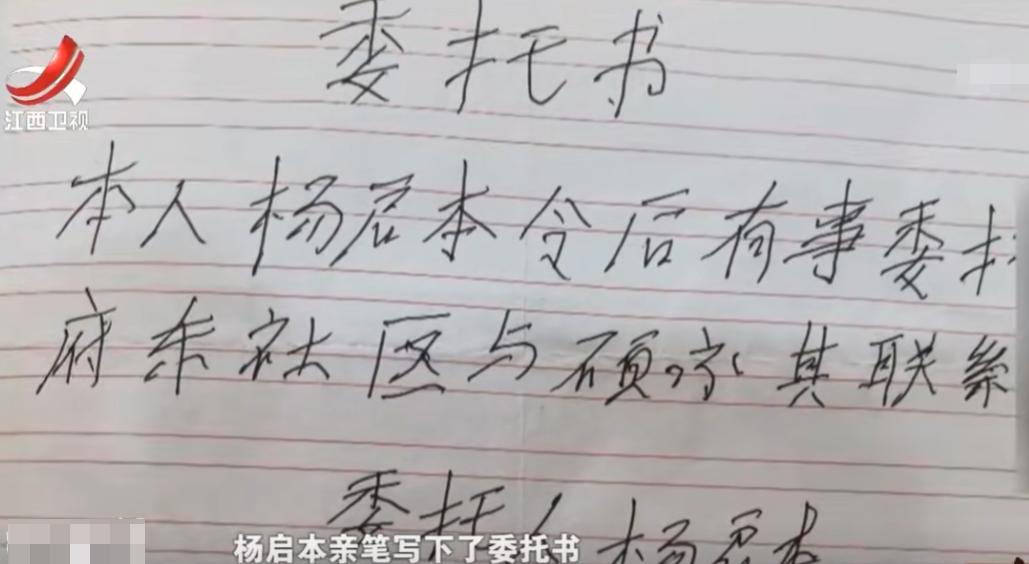 委托书
江西卫视
本人杨启本今后有事委托
府东社区与硕尔其联系
委托人杨启本
杨启本亲笔写下了委托书